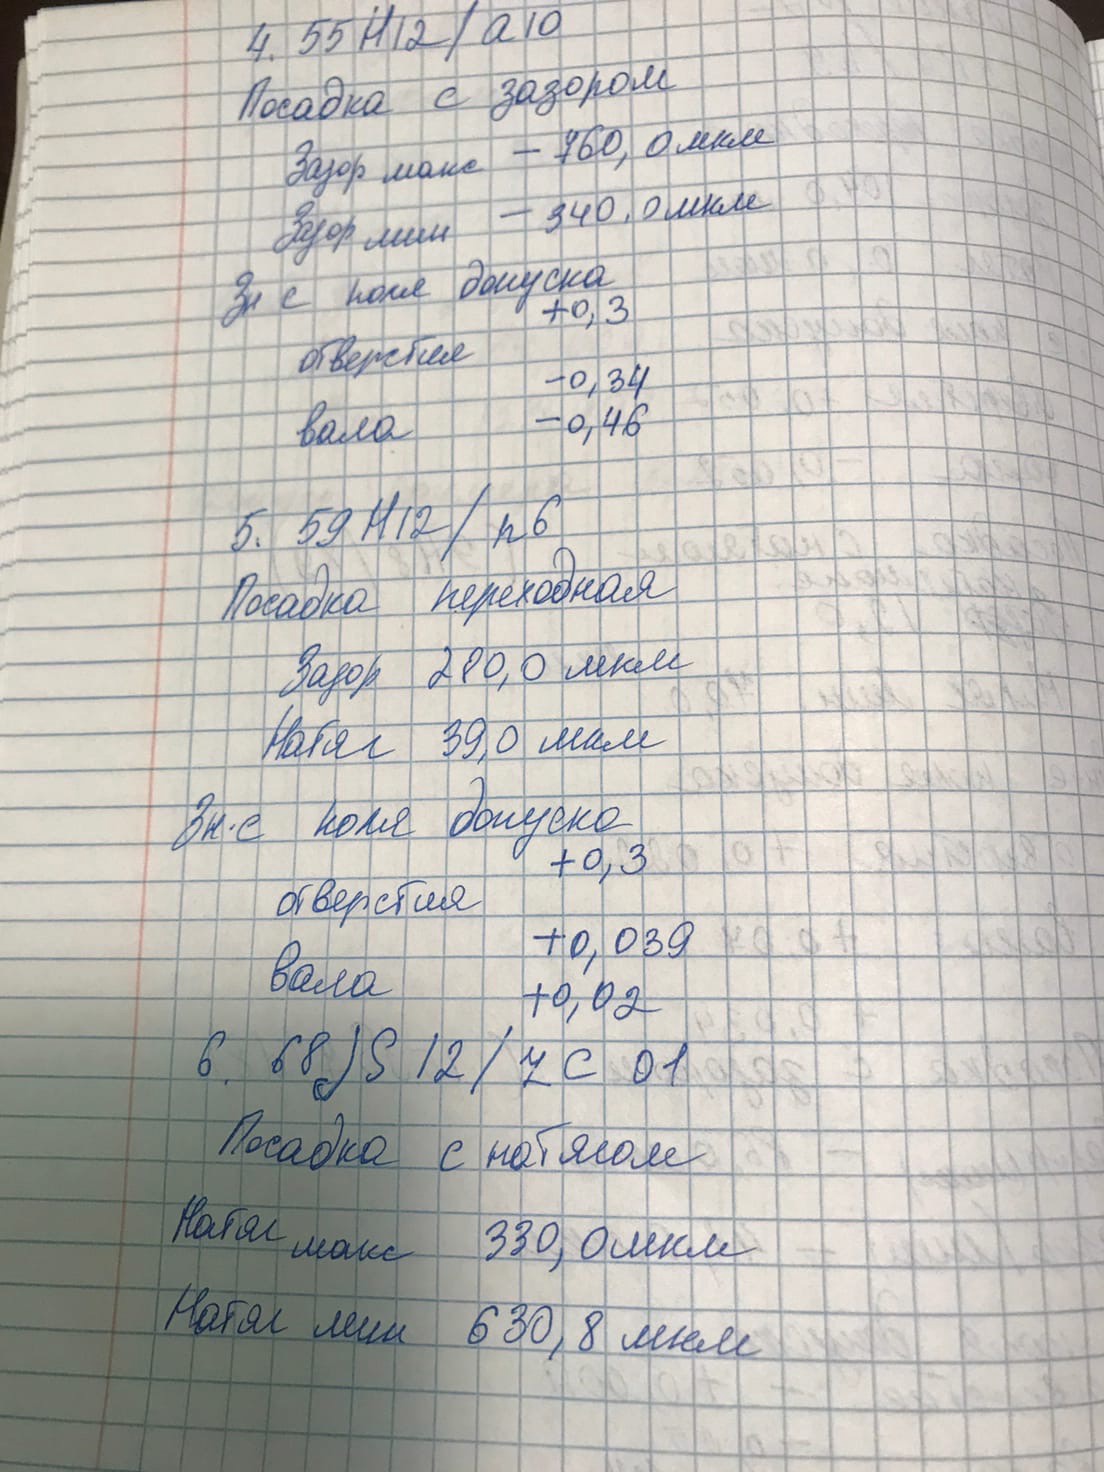 4. 55H12/a10
Посадка с зазором
Зазор макс – 760,0 мкм
Зазор мин – 340,0 мкм
Зн с поля допуска
+0,3
отверстия
-0,34
вала -0,46
5. 59H12/n6
Посадка переходная
Зазор 280,0 мкм
Натяг 39,0 мкм
Зн-с поля допуска
+0,3
отверстия
+0,039
вала +0,02
6. 68JS12/zc 01
Посадка с натягом
Натяг макс 330,0 мкм
Натяг мин 630,8 мкм